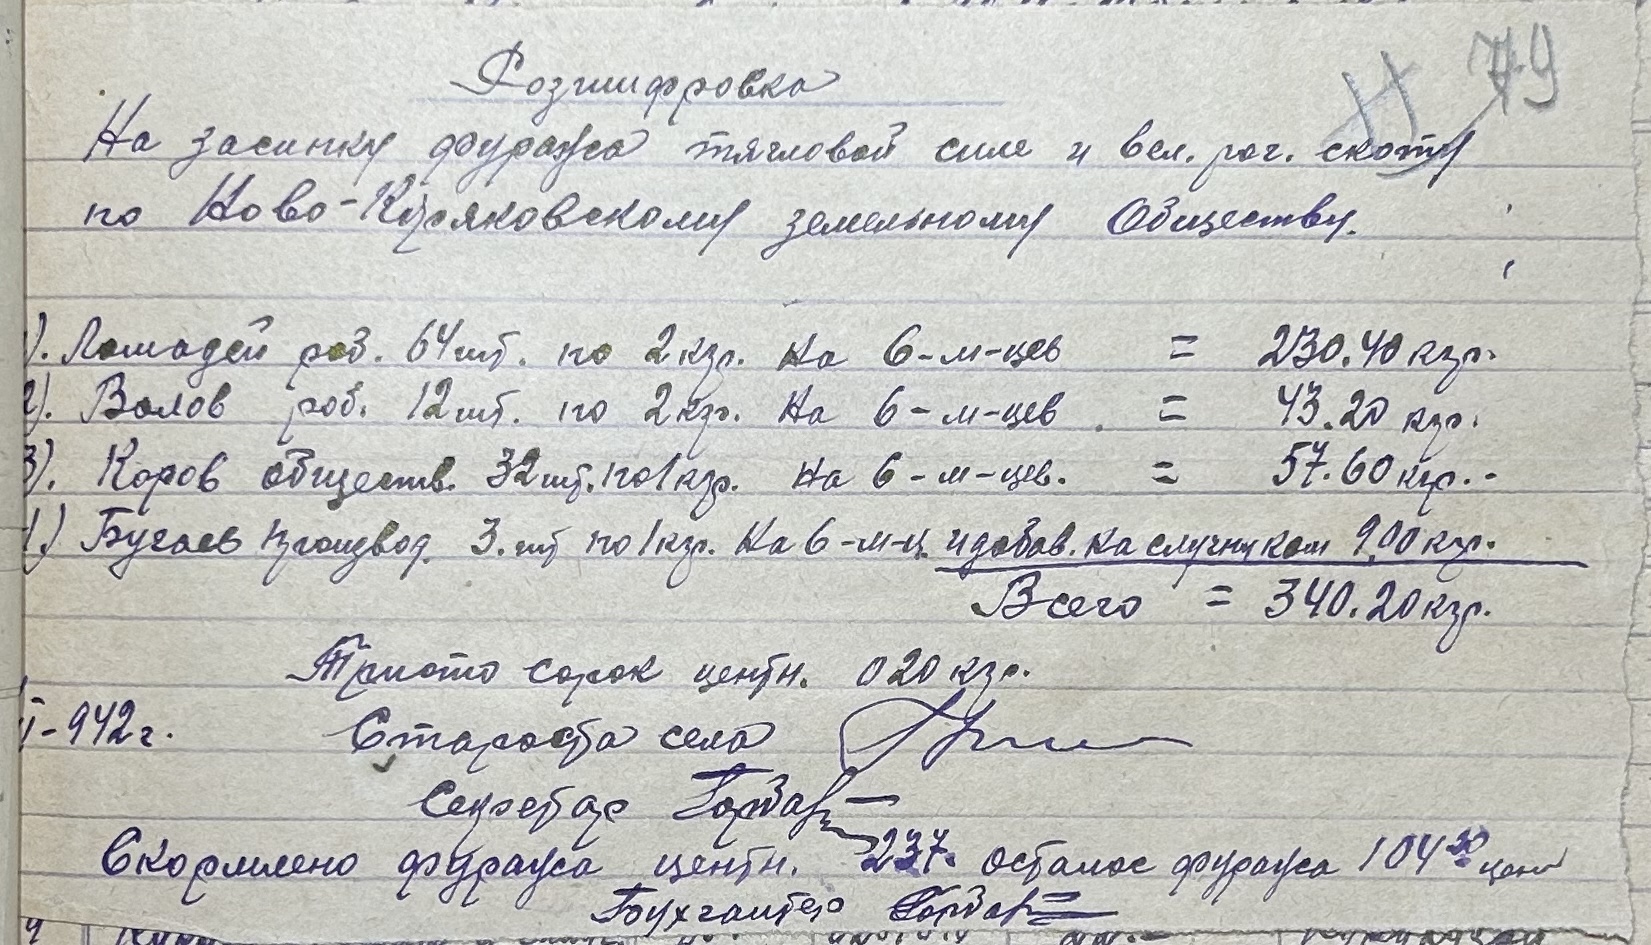 79
Розшифровка
На засипку фуража тягловой силе и вел. рог. скоту
по Ново-Куряковскому земельному Обществу.
1). Лошадей роб. 64 шт. по 2 кгр. На 6-м-цев = 230.40 кгр.
2). Волов роб. 12 шт. по 2 кгр. На 6-м-цев = 43.20 кгр.
3). Коров обществ. 32 шт. по 1 кгр. На 6-м-цев. = 57.60 кгр.-
4) Бугаев производ. 3. шт по 1 кгр. На 6-м-ц и добав. на случку ком 9,00 кгр.
Всего = 340.20 кгр.
Триста сорок центн. 020 кгр.
-942 г. Староста села
Секретар Горбань
Скормлено фуража центн. 237. осталос фуража 104 цент
Бухгалтер Горбань